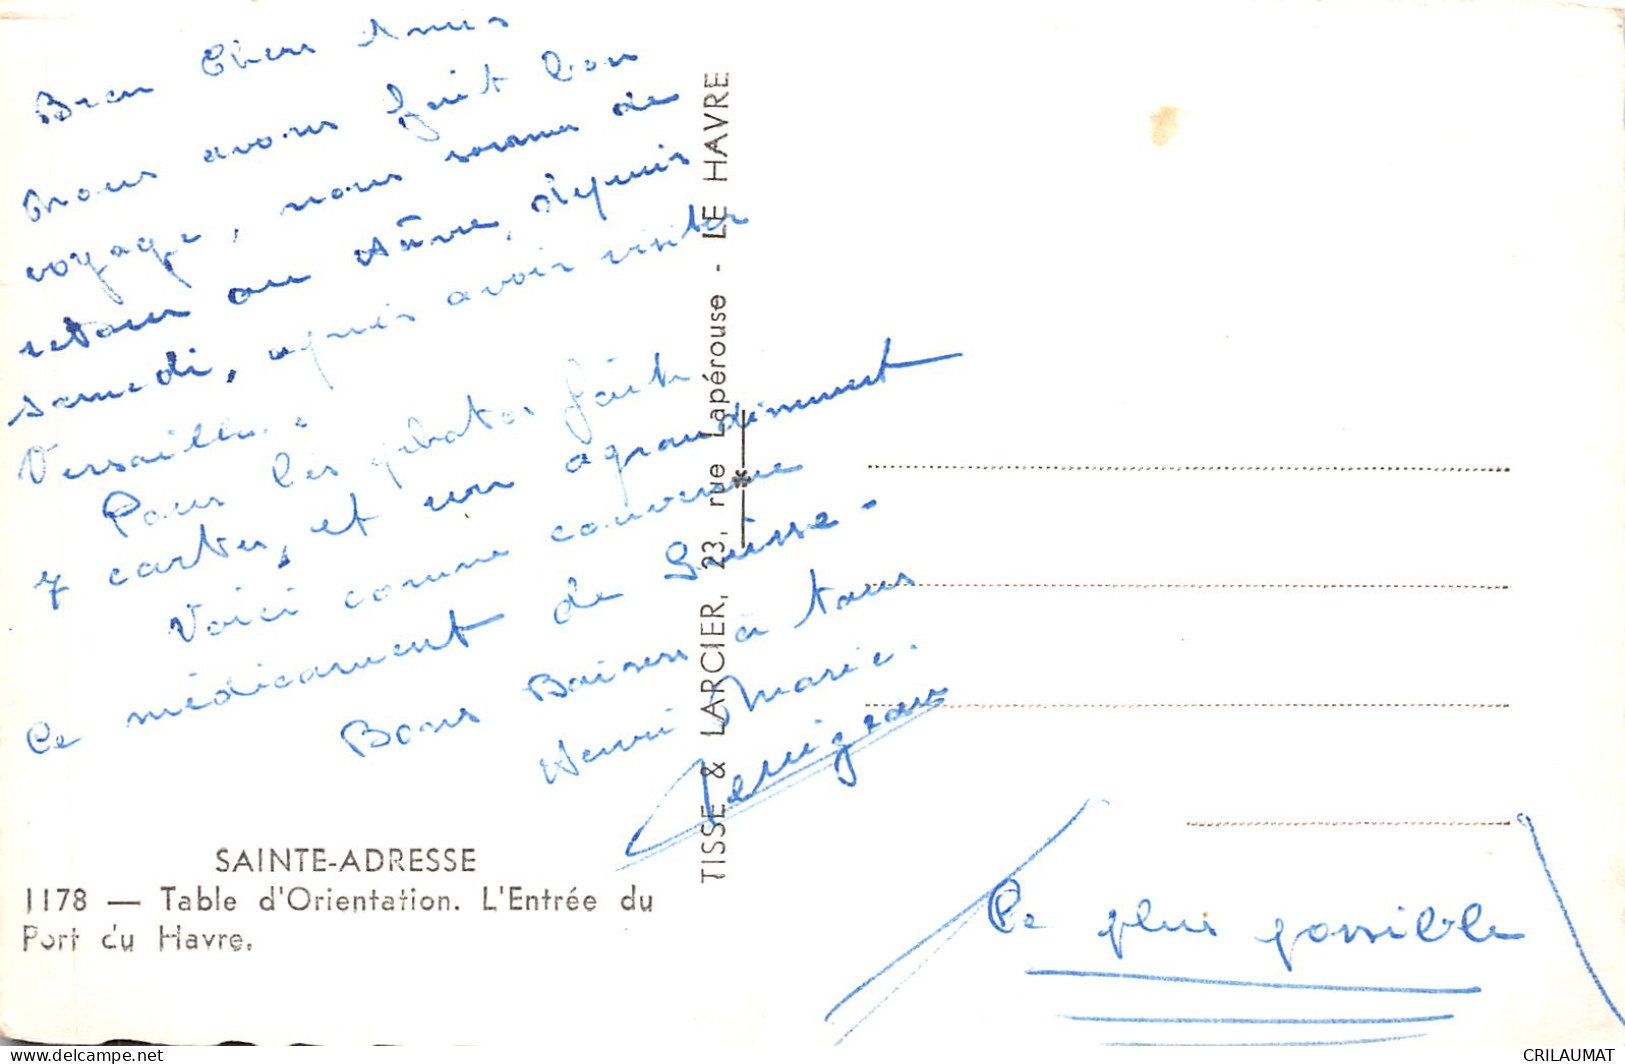 Bien Cher Amis
Nous avons fait bon
voyage, nous somme de
retour au Hâvre, depuis
samedi, après avoir visiter
Versailles.
Pour les photos fait
7 cartes, et un agrandiment
Voici comme convenue
Ce médicament de Suisse -
Bons Baisers à tous
Henri Marie.
SAINTE-ADRESSE
1178 — Table d'Orientation. L'Entrée du
Port du Havre.
TISSE & LARCIER, 23, rue Lapérouse - LE HAVRE
Le plus possible
CRILAUMAT